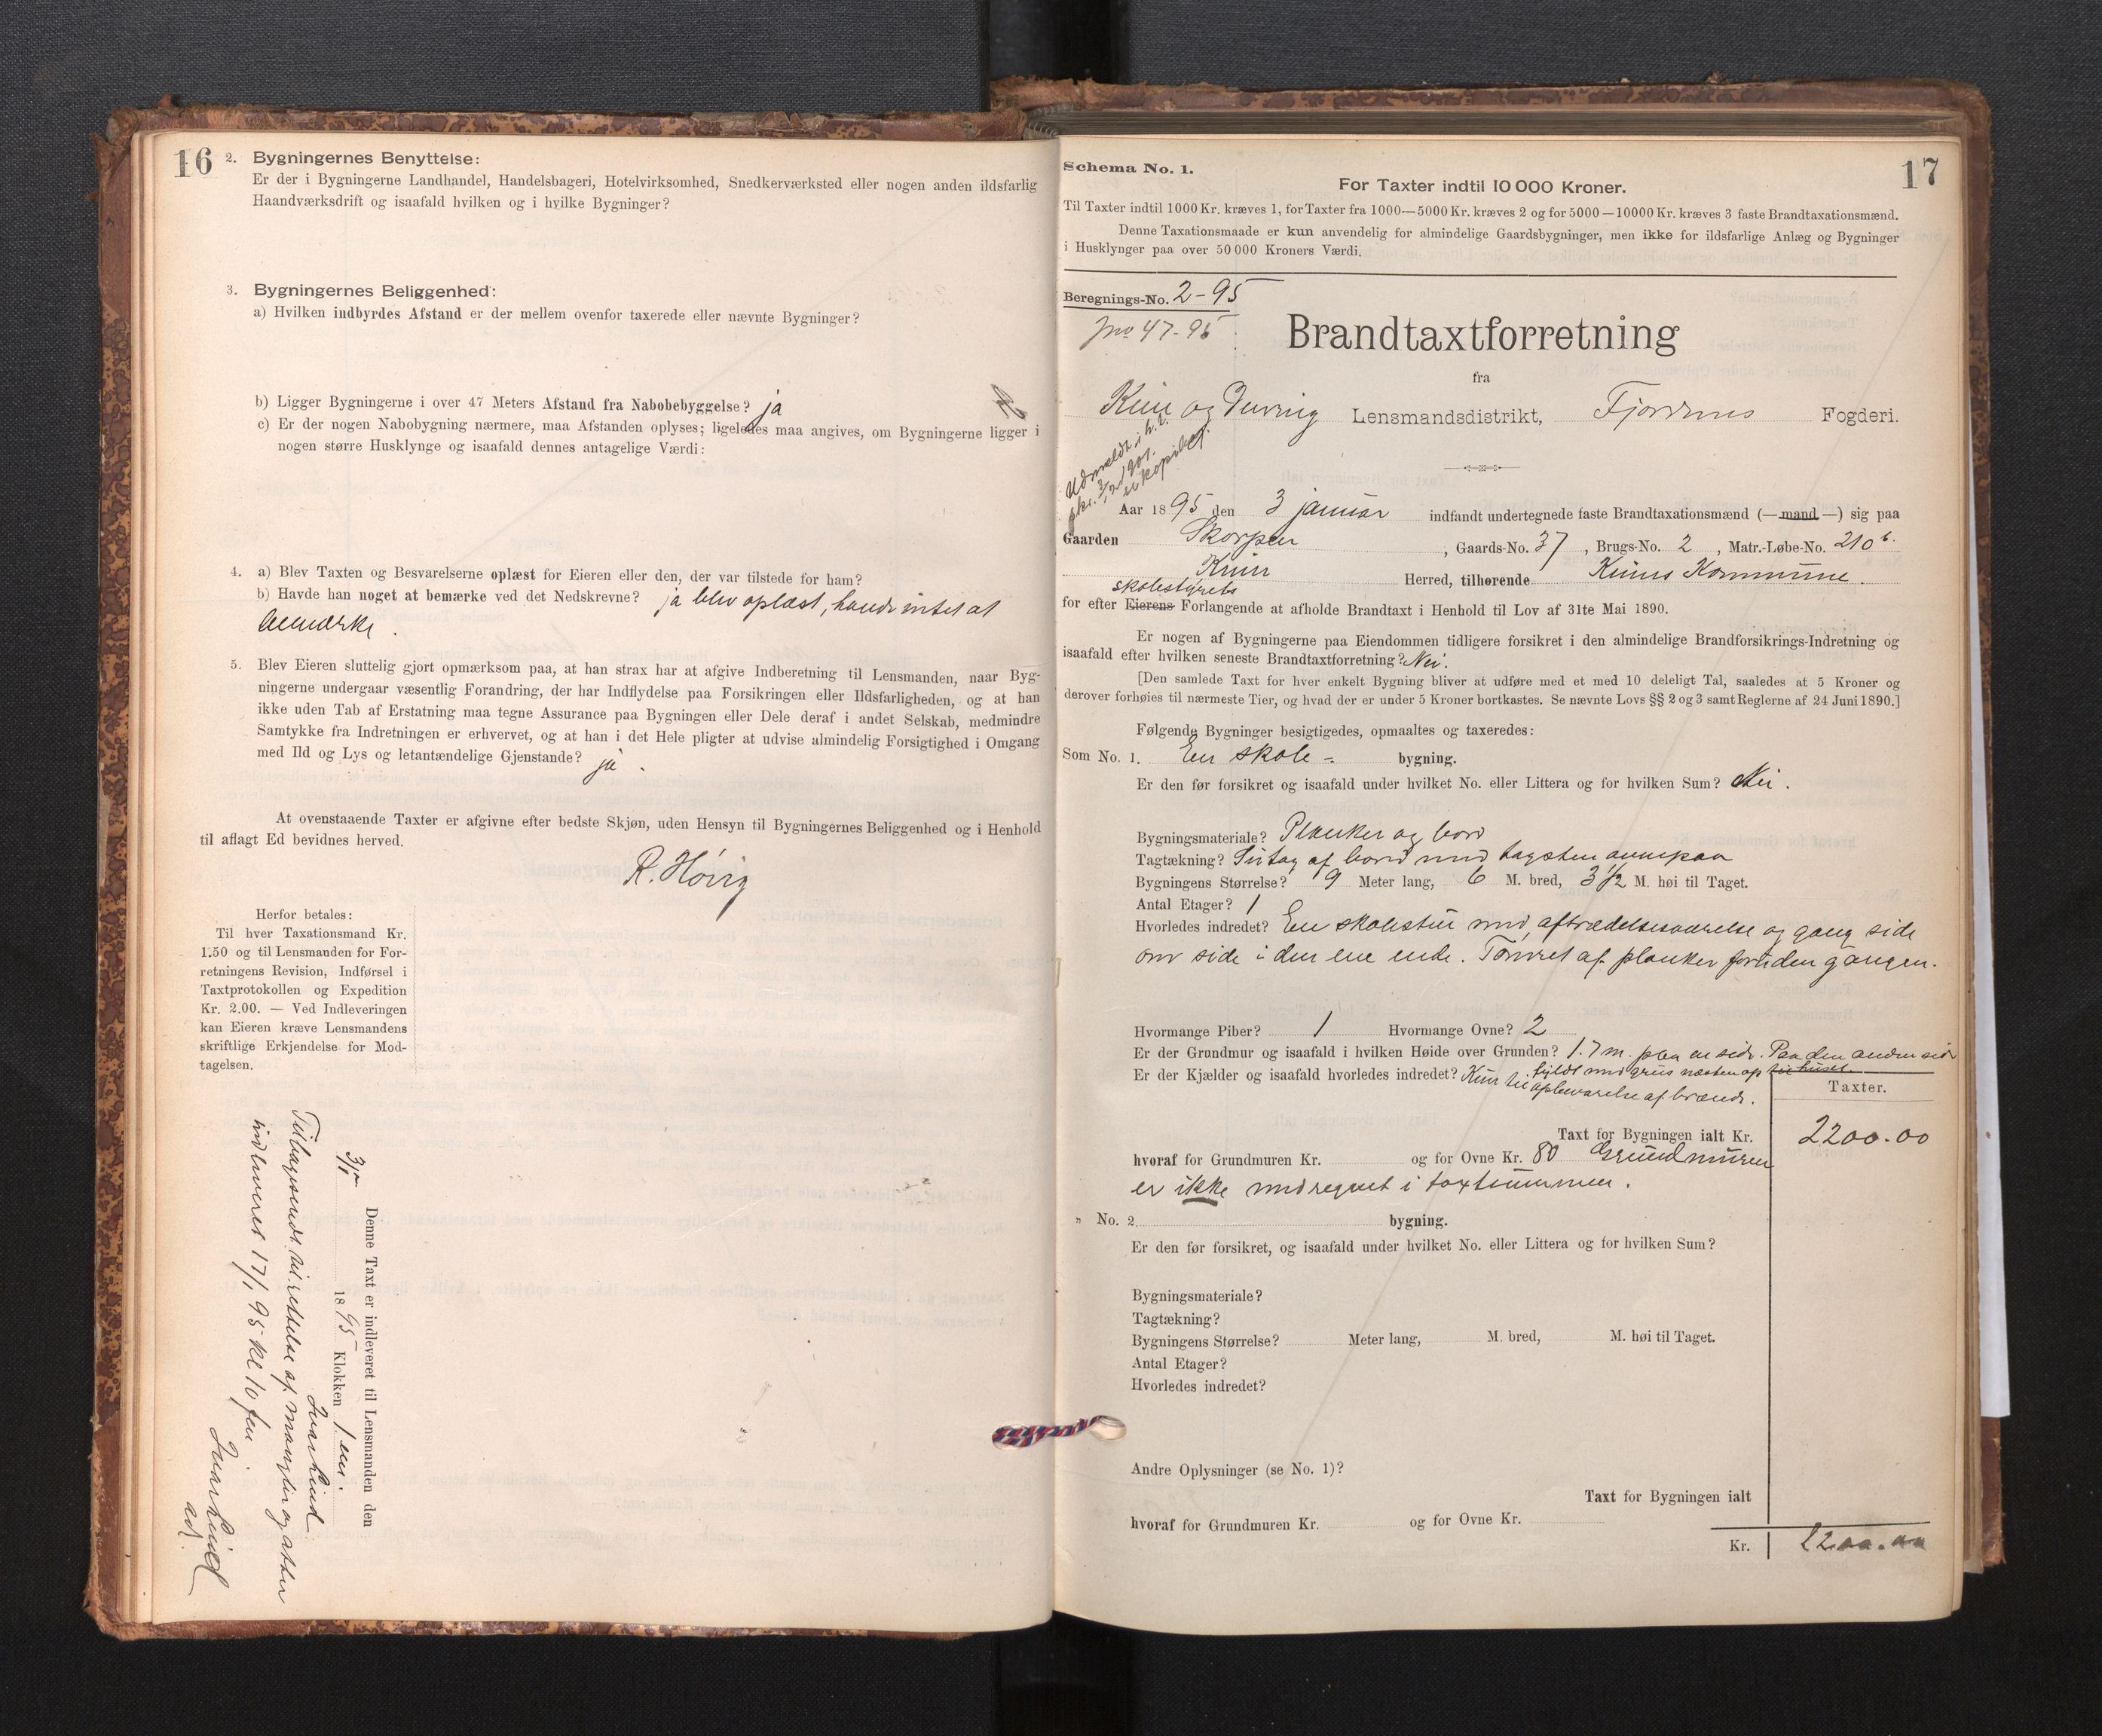 16
2. Bygningernes Benyttelse:
Er der i Bygningerne Landhandel, Handelsbageri, Hotelvirksomhed, Snedkerværksted eller nogen anden ildsfarlig
Haandværksdrift og isaafald hvilken og i hvilke Bygninger?
3. Bygningernes Beliggenhed:
a) Hvilken indbyrdes Afstand er der mellem ovenfor taxerede eller nævnte Bygninger?
b) Ligger Bygningerne i over 47 Meters Afstand fra Nabobebyggelse? ja
c) Er der nogen Nabobygning nærmere, maa Afstanden oplyses; ligeledes maa angives, om Bygningerne ligger i
nogen større Husklynge og isaafald dennes antagelige Værdi:
4. a) Blev Taxten og Besvarelserne oplæst for Eieren eller den, der var tilstede for ham?
b) Havde han noget at bemærke ved det Nedskrevne? ja blev oplæst, havde intet at
bemærke.
5. Blev Eieren sluttelig gjort opmærksom paa, at han strax har at afgive Indberetning til Lensmanden, naar Byg-
ningerne undergaar væsentlig Forandring, der har Indflydelse paa Forsikringen eller Ildsfarligheden, og at han
ikke uden Tab af Erstatning maa tegne Assurance paa Bygningen eller Dele deraf i andet Selskab, medmindre
Samtykke fra Indretningen er erhvervet, og at han i det Hele pligter at udvise almindelig Forsigtighed i Omgang
med Ild og Lys og letantændelige Gjenstande? ja.
At ovenstaaende Taxter er afgivne efter bedste Skjøn, uden Hensyn til Bygningernes Beliggenhed og i Henhold
til aflagt Ed bevidnes herved.
R. Høvig
Herfor betales:
Til hver Taxationsmand Kr.
1.50 og til Lensmanden for For-
retningens Revision, Indførsel i
Taxtprotokollen og Expedition
Kr. 2.00. — Ved Indleveringen
kan Eieren kræve Lensmandens
skriftlige Erkjendelse for Mod-
tagelsen.
Denne Taxt er indleveret til Lensmanden den
3/1 1895 Klokken 1 em
Tilbagesendt til rettelse af mangler og atter
indleveret 17/1 95 kl 10 fm
17
Schema No. 1.
For Taxter indtil 10 000 Kroner.
Til Taxter indtil 1000 Kr. kræves 1, for Taxter fra 1000—5000 Kr. kræves 2 og for 5000—10000 Kr. kræves 3 faste Brandtaxationsmænd.
Denne Taxationsmaade er kun anvendelig for almindelige Gaardsbygninger, men ikke for ildsfarlige Anlæg og Bygninger
i Husklynger paa over 50 000 Kroners Værdi.
Beregnings-No. 2-95
Jno 47-95
Brandtaxtforretning
fra
Kinn og Lensmandsdistrikt, Fjordenes Fogderi.
Udmeldt i h.t.
skr. 3/12 1901.
Aar 1895 den 3 januar indfandt undertegnede faste Brandtaxationsmænd (—mand—) sig paa
Gaarden Skorpen, Gaards-No. 37, Brugs-No. 2, Matr.-Løbe-No. 210 b.
Kinn Herred, tilhørende Kinns Kommune.
skolestyrets
for efter Eierens Forlangende at afholde Brandtaxt i Henhold til Lov af 31te Mai 1890.
Er nogen af Bygningerne paa Eiendommen tidligere forsikret i den almindelige Brandforsikrings-Indretning og
isaafald efter hvilken seneste Brandtaxtforretning? Nei.
[Den samlede Taxt for hver enkelt Bygning bliver at udføre med et med 10 deleligt Tal, saaledes at 5 Kroner og
derover forhøies til nærmeste Tier, og hvad der er under 5 Kroner bortkastes. Se nævnte Lovs §§ 2 og 3 samt Reglerne af 24 Juni 1890.]
Følgende Bygninger besigtigedes, opmaaltes og taxeredes:
Som No. 1. En skole- bygning.
Er den før forsikret og isaafald under hvilket No. eller Littera og for hvilken Sum? Nei.
Bygningsmateriale? Planker og bord
Tagtækning? Sutag af bord med tagsten ovenpaa
Bygningens Størrelse? 9 Meter lang, 6 M. bred, 3 1/2 M. høi til Taget.
Antal Etager? 1
Hvorledes indret? En skolestue med aftrædelsesværelse og gang side
om side i den ene ende. Tømret af planker foruden gangen.
Hvormange Piber? 1 Hvormange Ovne? 2
Er der Grundmur og isaafald i hvilken Høide over Grunden? 1.7 m. paa en side. Paa den anden side
fyldt med grus næsten op til huset.
Er der Kjælder og isaafald hvorledes indredet? Kun til opbevarelse af brænde.
Taxter.
Taxt for Bygningen ialt Kr. 2200.00
hvoraf for Grundmuren Kr. og for Ovne Kr. 80 Grundmuren
er ikke medregnet i taxtsummen.
" No. 2 bygning.
Er den før forsikret, og isaafald under hvilket No. eller Littera og for hvilken Sum?
Bygningsmateriale?
Tagtækning?
Bygningens Størrelse? Meter lang, M. bred, M. høi til Taget.
Antal Etager?
Hvorledes indredet?
Andre Oplysninger (se No. 1)?
Taxt for Bygningen ialt
hvoraf for Grundmuren Kr. og for Ovne Kr.
Kr. 2200.00